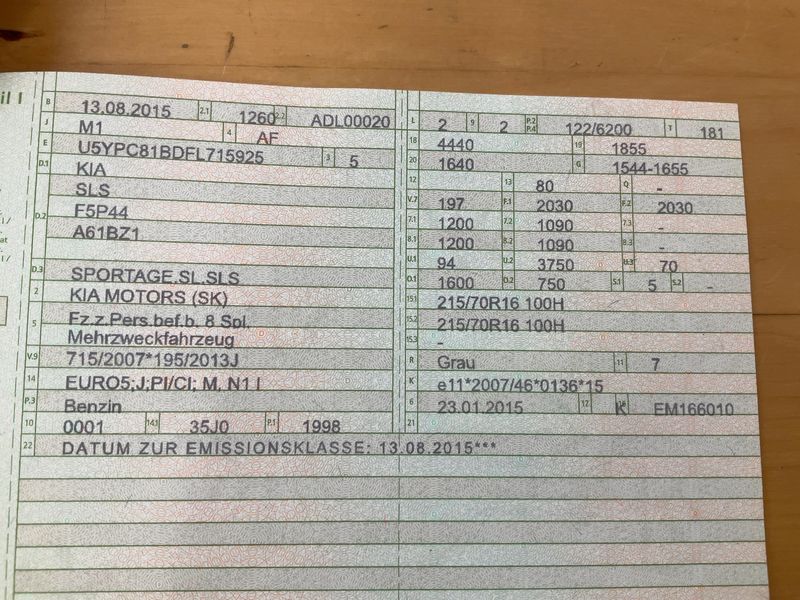 il I
B 13.08.2015 2.1 1260 2.2 ADL00020
J M1 4 AF
E U5YPC81BDFL715925 3 5
D.1 KIA
SLS
D.2 F5P44
A61BZ1
D.3 SPORTAGE,SL,SLS
2 KIA MOTORS (SK)
5 Fz.z.Pers.bef.b. 8 Spl.
Mehrzweckfahrzeug
V.9 715/2007*195/2013J
14 EURO5;J;PI/CI; M, N1 I
P.3 Benzin
10 0001 14.1 35J0 P.1 1998
22 DATUM ZUR EMISSIONSKLASSE: 13.08.2015***
L 2 9 2 P.2 P.4 122/6200 T 181
18 4440 19 1855
20 1640 G 1544-1655
12 13 80 Q -
V.7 197 F.1 2030 F.2 2030
7.1 1200 7.2 1090 7.3 -
8.1 1200 8.2 1090 8.3 -
U.1 94 U.2 3750 U.3 70
O.1 1600 O.2 750 S.1 5 S.2 -
15.1 215/70R16 100H
15.2 215/70R16 100H
15.3 -
R Grau 11 7
K e11*2007/46*0136*15
6 23.01.2015 17 K 16 EM166010
21